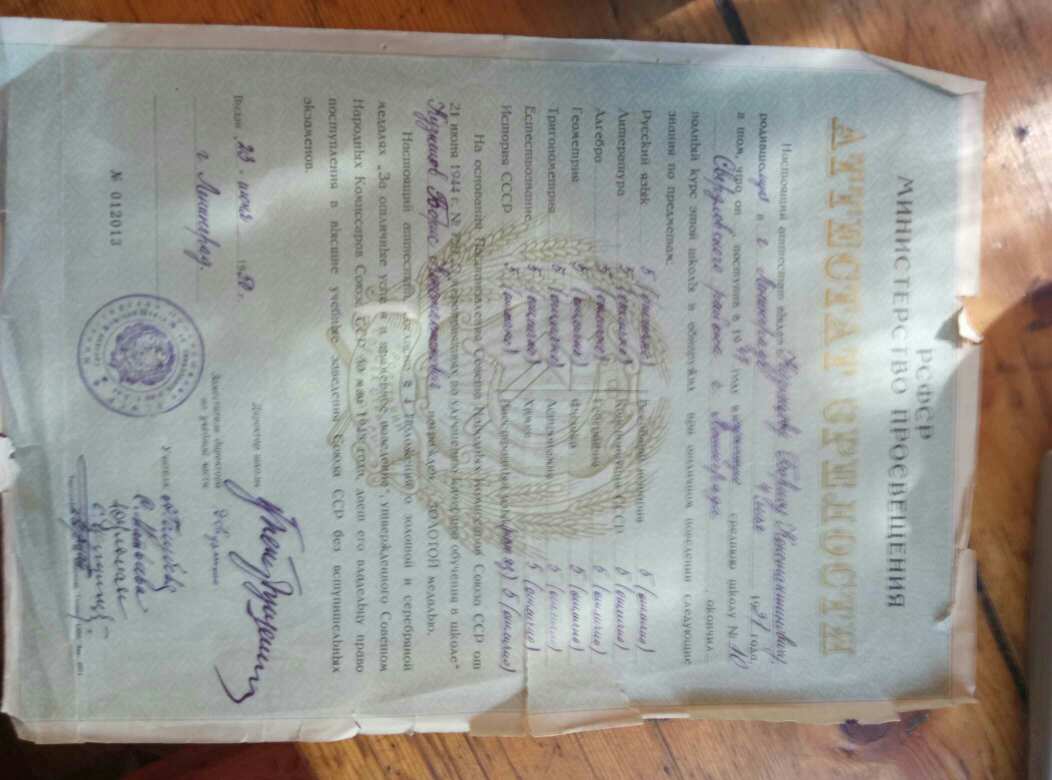 РСФСР
МИНИСТЕРСТВО ПРОСВЕЩЕНИЯ
АТТЕСТАТ ЗРЕЛОСТИ
Настоящий аттестат выдан Борису Константиновичу,
родившемуся в г. Ленинграде 19 года,
в том, что он, поступив в 19 году в среднюю школу № 10
Свердловского района г. Ленинграда, окончил
полный курс этой школы и обнаружил при отличном поведении следующие
знания по предметам:
Русский язык 5 (отлично) 5 (отлично)
Литература 5 (отлично) Конституция СССР 5 (отлично)
Алгебра 5 (отлично) География 5 (отлично)
Геометрия 5 (отлично) Физика 5 (отлично)
Тригонометрия 5 (отлично) Астрономия 5 (отлично)
Естествознание 5 (отлично) Химия 5 (отлично)
История СССР 5 (отлично) Иностранный язык 5 (отлично)
На основании Постановления Совета Народных Комиссаров Союза ССР от
21 июня 1944 г. № „О мероприятиях по улучшению качества обучения в школе“
Борис Константинович награжден ЗОЛОТОЙ медалью.
Настоящий аттестат, согласно § 4 Положения о золотой и серебряной
медалях „За отличные успехи и примерное поведение“, утвержденного Советом
Народных Комиссаров Союза ССР 30 мая 1945 года, дает его владельцу право
поступления в высшие учебные заведения Союза ССР без вступительных
экзаменов.
Выдан 23 июня 19 г.
г. Ленинград.
№ 012013
Директор школы
Заместитель директора
по учебной части
Учителя